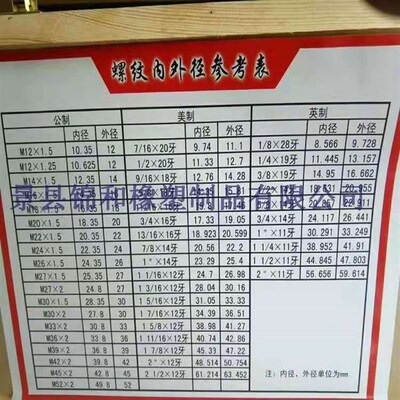 螺纹内外径参考表
公制 美制 英制
内径 外径 内径 外径 内径 外径
M12×1.5 10.35 12 7/16×20牙 9.74 11.1 1/8×28牙 8.566 9.728
M12×1.25 10.625 12 1/2×20牙 11.33 12.7 1/4×19牙 11.445 13.157
M14×1.5 12.35 14 9/16×18牙 12.76 14.28 3/8×19牙 14.95 16.662
景县锦和橡塑制品有限公司
M20×1.5 18.35 20 3/4×16牙 17.33 19.05 3/4×14牙 24.117 26.441
M22×1.5 20.35 22 13/16×16牙 18.923 20.599 1"×11牙 30.291 33.249
M24×1.5 22.35 24 7/8×14牙 20.56 22.2 1 1/4×11牙 38.952 41.91
M26×1.5 24.35 26 1"×14牙 23.29 25.4 1 1/2×11牙 44.845 47.803
M27×1.5 25.35 27 1 1/16×12牙 24.7 26.98 2"×11牙 56.656 59.614
M27×2 24.8 27 1 3/16×12牙 28.04 30.16
M30×1.5 28.35 30 1 5/16×12牙 31.05 33.33
M30×2 27.8 30 1 7/16×12牙 34.35 36.51
M33×2 30.8 33 1 5/8×12牙 38.98 41.27
M36×2 33.8 36 1 11/16×12牙 40.74 42.86
M39×2 36.8 39 1 7/8×12牙 45.33 47.22
M42×2 39.8 42 2"×12牙 48.514 50.754
M45×2 42.8 45 2 1/2×12牙 61.214 63.452
M52×2 49.8 52
注:内径、外径单位为mm